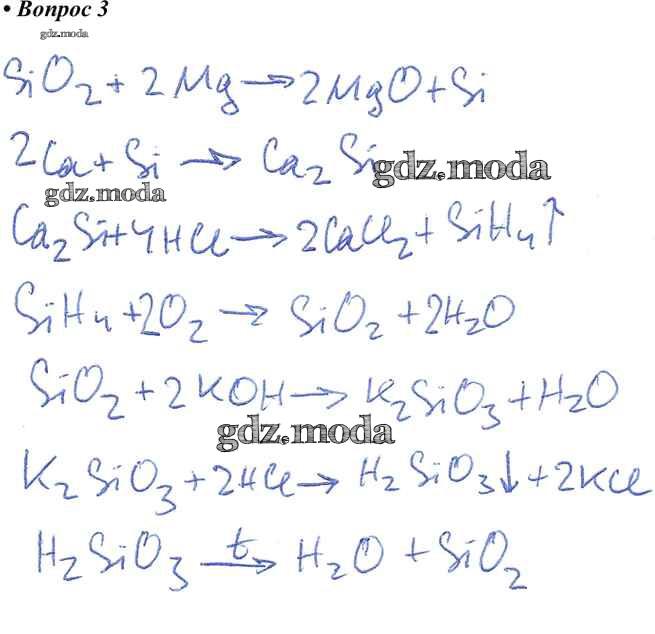 • Вопрос 3
gdz.moda
SiO₂ + 2Mg → 2MgO + Si
2Ca + Si → Ca₂Si
gdz.moda
gdz.moda
Ca₂Si + 4HCl → 2CaCl₂ + SiH₄↑
SiH₄ + 2O₂ → SiO₂ + 2H₂O
SiO₂ + 2KOH → K₂SiO₃ + H₂O
gdz.moda
K₂SiO₃ + 2HCl → H₂SiO₃↓ + 2KCl
H₂SiO₃ t→ H₂O + SiO₂